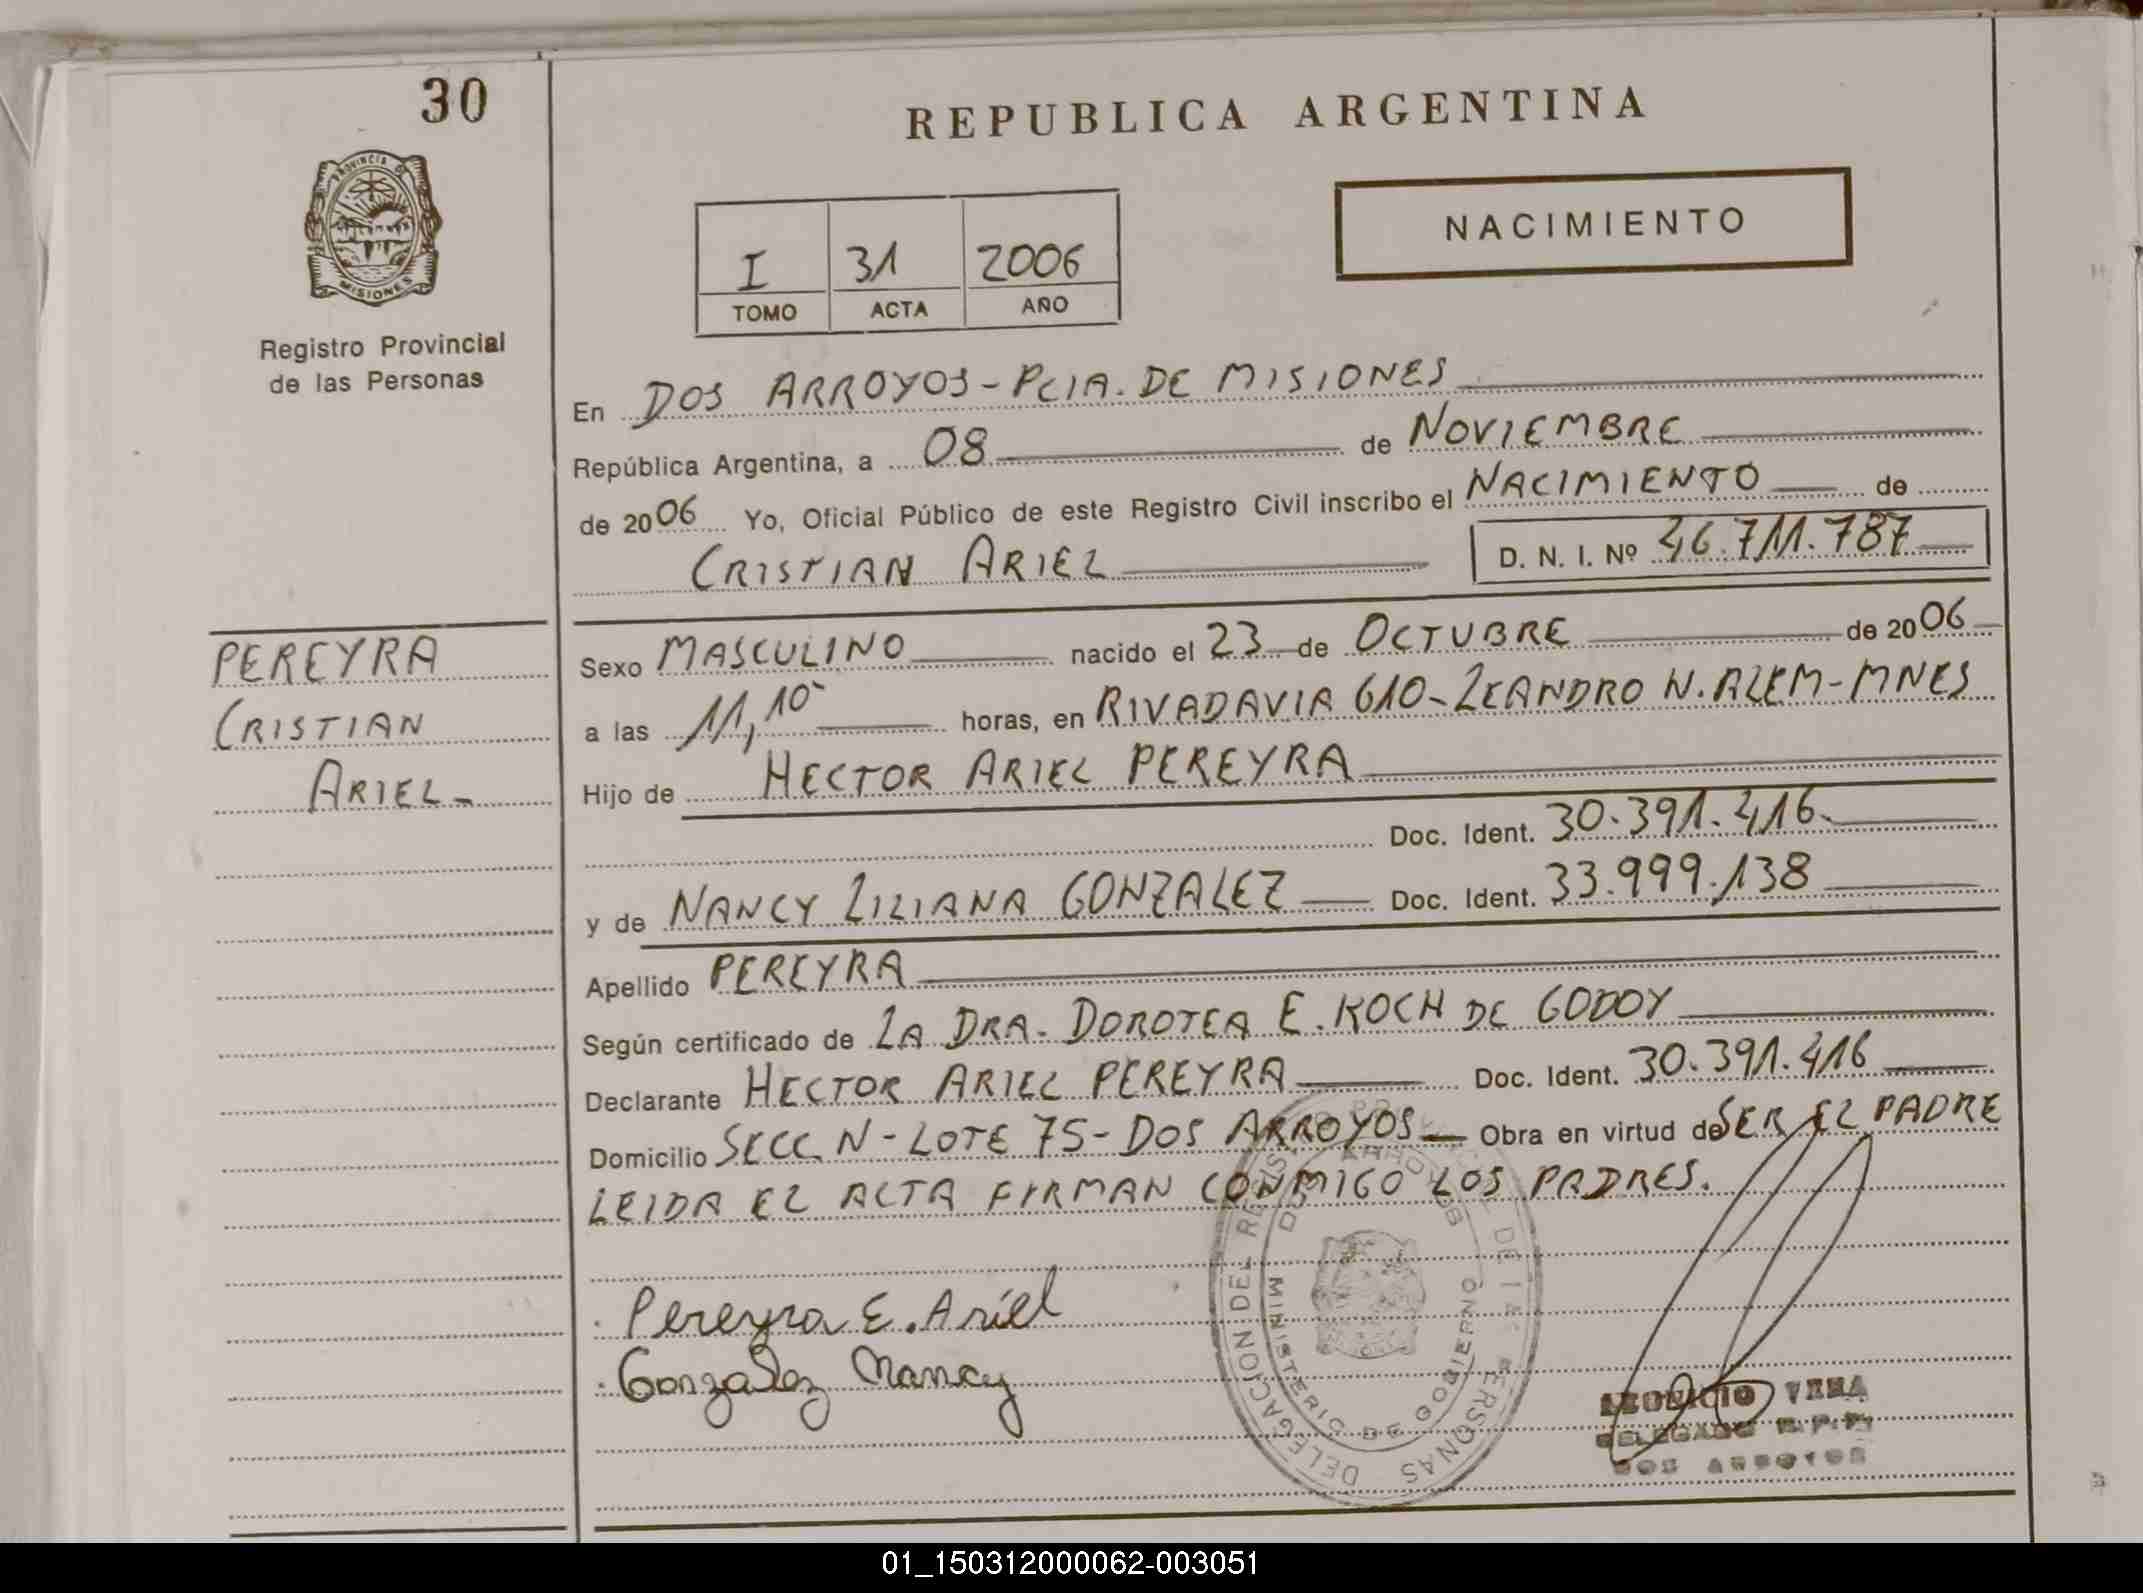 30
REPUBLICA ARGENTINA
PROVINCIA DE
MISIONES
NACIMIENTO
I 31 2006
TOMO ACTA AÑO
Registro Provincial
de las Personas
En DOS ARROYOS - PCIA. DE MISIONES
República Argentina, a 08 de NOVIEMBRE
de 2006 Yo, Oficial Público de este Registro Civil inscribo el NACIMIENTO de
CRISTIAN ARIEL D. N. I. Nº 46.711.787
PEREYRA
CRISTIAN
ARIEL-
Sexo MASCULINO nacido el 23 de OCTUBRE de 2006
a las 11,10 horas, en RIVADAVIA 610-LEANDRO N. ALEM-MNES
Hijo de HECTOR ARIEL PEREYRA
Doc. Ident. 30.391.416.
y de NANCY LILIANA GONZALEZ Doc. Ident. 33.999.138
Apellido PEREYRA
Según certificado de LA DRA. DOROTEA E. KOCH DE GODOY
Declarante HECTOR ARIEL PEREYRA Doc. Ident. 30.391.416
Domicilio SECC. N - LOTE 75 - DOS ARROYOS Obra en virtud de SER EL PADRE
LEIDA EL ACTA FIRMAN CONMIGO LOS PADRES.
Pereyra E. Ariel
Gonzalez Nancy
DELEGACION DEL REGISTRO PROVINCIAL DE LAS PERSONAS
DOS ARROYOS
MINISTERIO DE GOBIERNO
VERA
DELEGADO R.P.P.
DOS ARROYOS
01_150312000062-003051